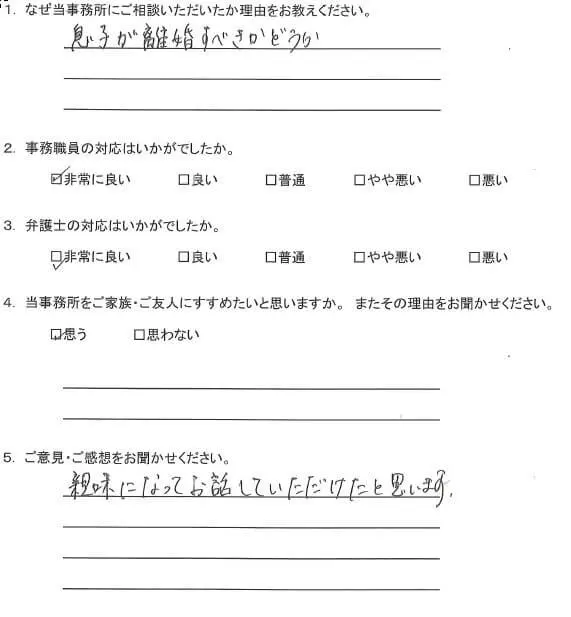 1. なぜ当事務所にご相談いただいたか理由をお教えください。
息子が離婚すべきかどうか
2. 事務職員の対応はいかがでしたか。
☑非常に良い □良い □普通 □やや悪い □悪い
3. 弁護士の対応はいかがでしたか。
☑非常に良い □良い □普通 □やや悪い □悪い
4. 当事務所をご家族・ご友人にすすめたいと思いますか。 またその理由をお聞かせください。
☑思う □思わない
5. ご意見・ご感想をお聞かせください。
親味になってお話していただけたと思います。